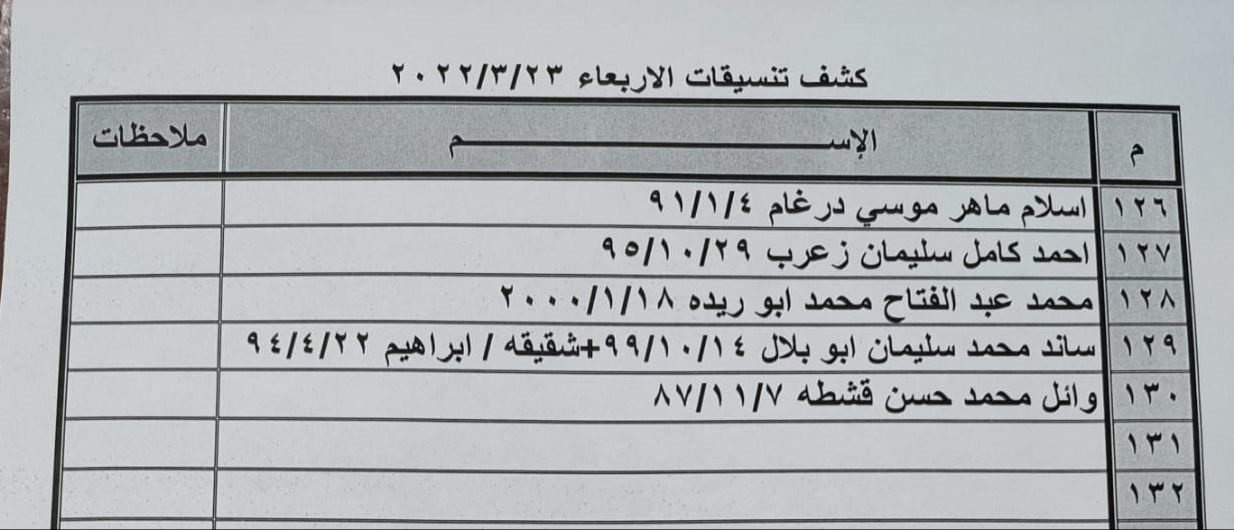 كشف تنسيقات الاربعاء ٢٠٢٢/٣/٢٣
م الإســـــــم ملاحظات
١٢٦ اسلام ماهر موسي درغام ٩١/١/٤
١٢٧ احمد كامل سليمان زعرب ٩٥/١٠/٢٩
١٢٨ محمد عبد الفتاح محمد ابو ريده ٢٠٠٠/١/١٨
١٢٩ ساند محمد سليمان ابو بلال ٩٩/١٠/١٤+شقيقه / ابراهيم ٩٤/٤/٢٢
١٣٠ وائل محمد حسن قشطه ٨٧/١١/٧
١٣١
١٣٢